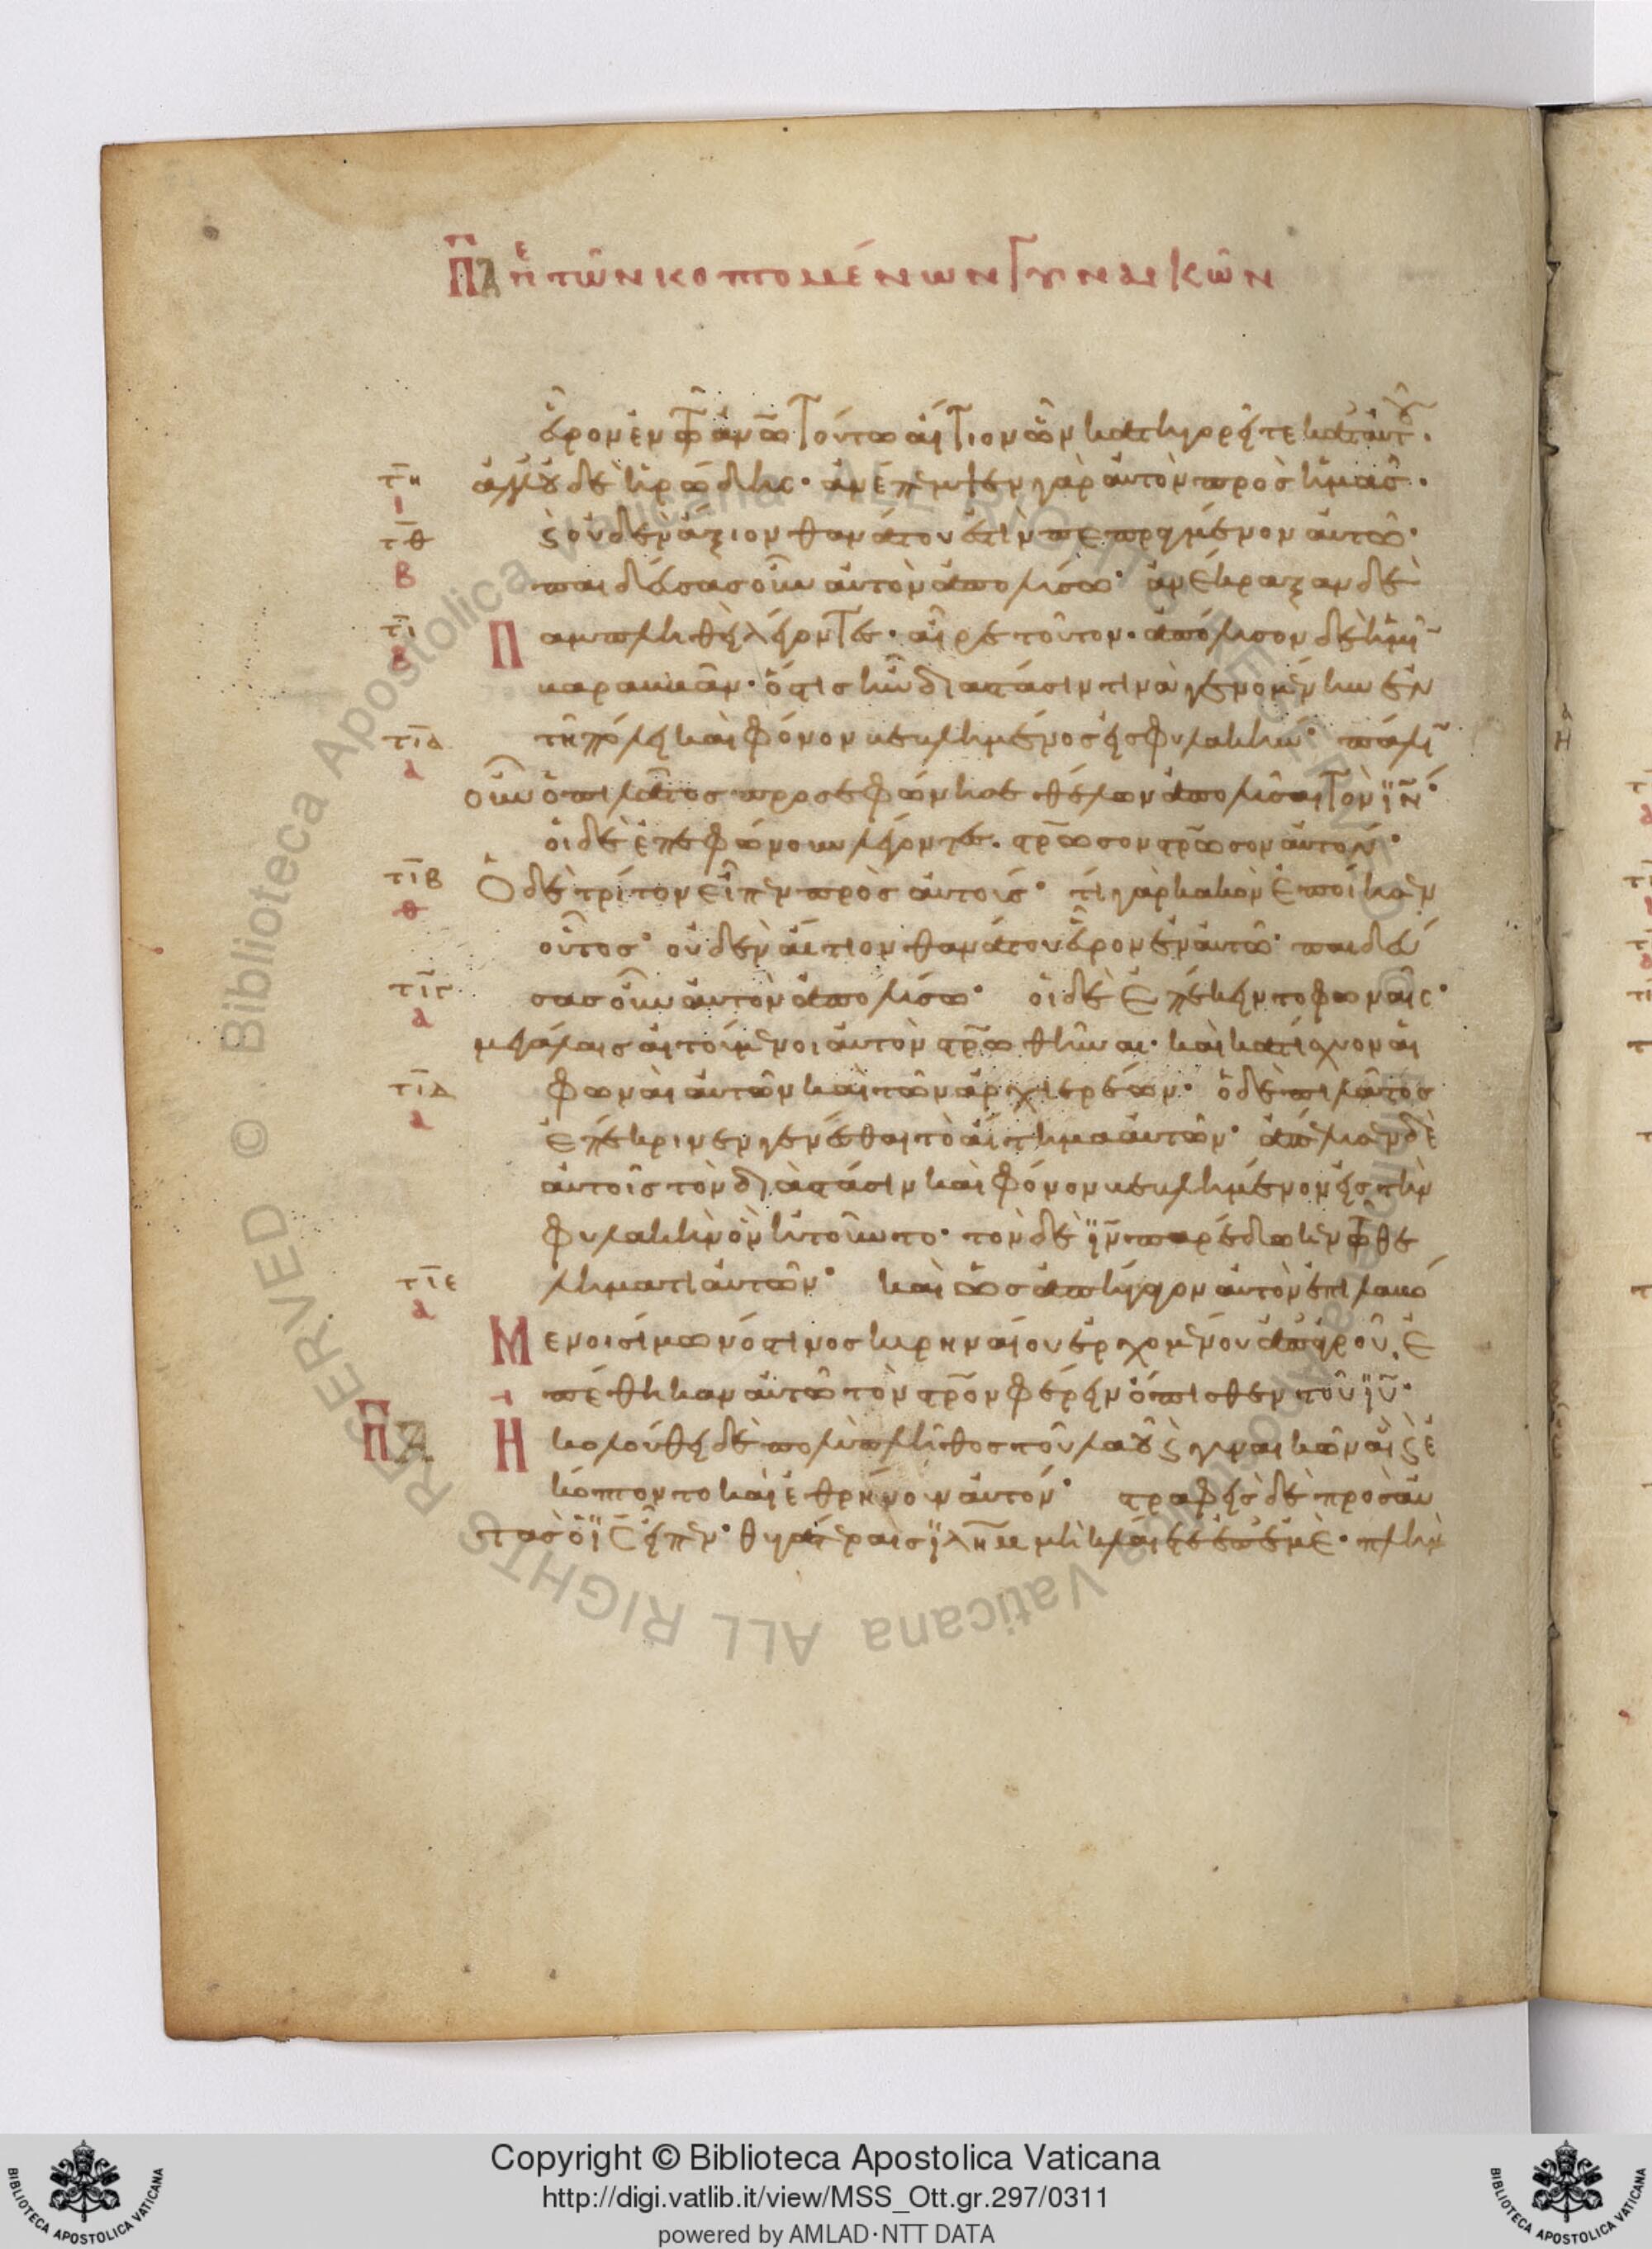 ΠΑ ἐπὶ τῶν κοπτομένων γυναικῶν
εὗρον ἐν τῷ ἀνῶ τούτω αἴτιον ὧν κατηγορεῖτε κατ αὐτοῦ.
τη ἀλλ οὐδὲ ἡρώδης· ἀνέπεμψεν γὰρ αὐτὸν πρὸς ἡμᾶς.
ι
τθ καὶ οὐδὲν ἄξιον θανάτου ἐστὶν πεπραγμένον αὐτῶ·
β παιδεύσας οὖν αὐτὸν ἀπολύσω· ἀνέκραξαν δὲ
τι παμπληθεὶ λέγοντες· αἶρε τοῦτον. ἀπόλυσον δὲ ἡμῖν
β
βαραββᾶν· ὅστις ἦν διὰ στάσιν τινὰ γενομένην ἐν
τια τῆ πόλει καὶ φόνον βεβλημένος εἰς φυλακήν· πάλιν
α
οὖν ὁ πιλᾶτος προσεφώνησε θέλων ἀπολῦσαι τὸν ιν·
οἱ δὲ ἐπεφώνουν λέγοντες. σρωσον σρωσον αὐτόν·
τιβ Ὁ δὲ τρίτον εἶπεν πρὸς αὐτούς· τί γὰρ κακὸν ἐποίησεν
θ
οὗτος· οὐδὲν αἴτιον θανάτου εὗρον ἐν αὐτῶ· παιδεύ
τιγ σας οὖν αὐτὸν ἀπολύσω· οἱ δὲ ἐπέκειντο φωναῖς·
α
μεγάλαις αἰτούμενοι αὐτὸν σρωθῆναι· καὶ κατίσχυον αἱ
τιδ φωναὶ αὐτῶν καὶ τῶν ἀρχιερέων· ὁ δὲ πιλᾶτος
α
ἐπέκρινεν γενέσθαι τὸ αἴτημα αὐτῶν· ἀπέλυσεν δὲ
αὐτοῖς τὸν διὰ στάσιν καὶ φόνον βεβλημένον εἰς τὴν
φυλακὴν ὃν ἠτοῦντο· τὸν δὲ ιν παρέδωκεν τῷ θε
τιε λήματι αὐτῶν· καὶ ὡς ἀπήγαγον αὐτὸν ἐπιλαβό
α
μενοι σίμωνός τινος κυρηναίου ἐρχομένου ἀπ ἀγροῦ, ἐ
πέθηκαν αὐτῶ τὸν σρον φέρειν ὄπισθεν τοῦ ιυ·
ΠΑ Ἠκολούθει δὲ πολὺ πλῆθος τοῦ λαοῦ καὶ γυναικῶν αἳ καὶ ἐ
κόπτοντο καὶ ἐθρήνουν αὐτόν· στραφεὶς δὲ πρὸς αὐ
τὰς ὁ ις εἶπεν· θυγατέραις ιλημ μὴ κλαίετε ἐπ ἐμέ· πλὴν
Copyright © Biblioteca Apostolica Vaticana
http://digi.vatlib.it/view/MSS_Ott.gr.297/0311
powered by AMLAD·NTT DATA
BIBLIOTECA APOSTOLICA VATICANA
BIBLIOTECA APOSTOLICA VATICANA